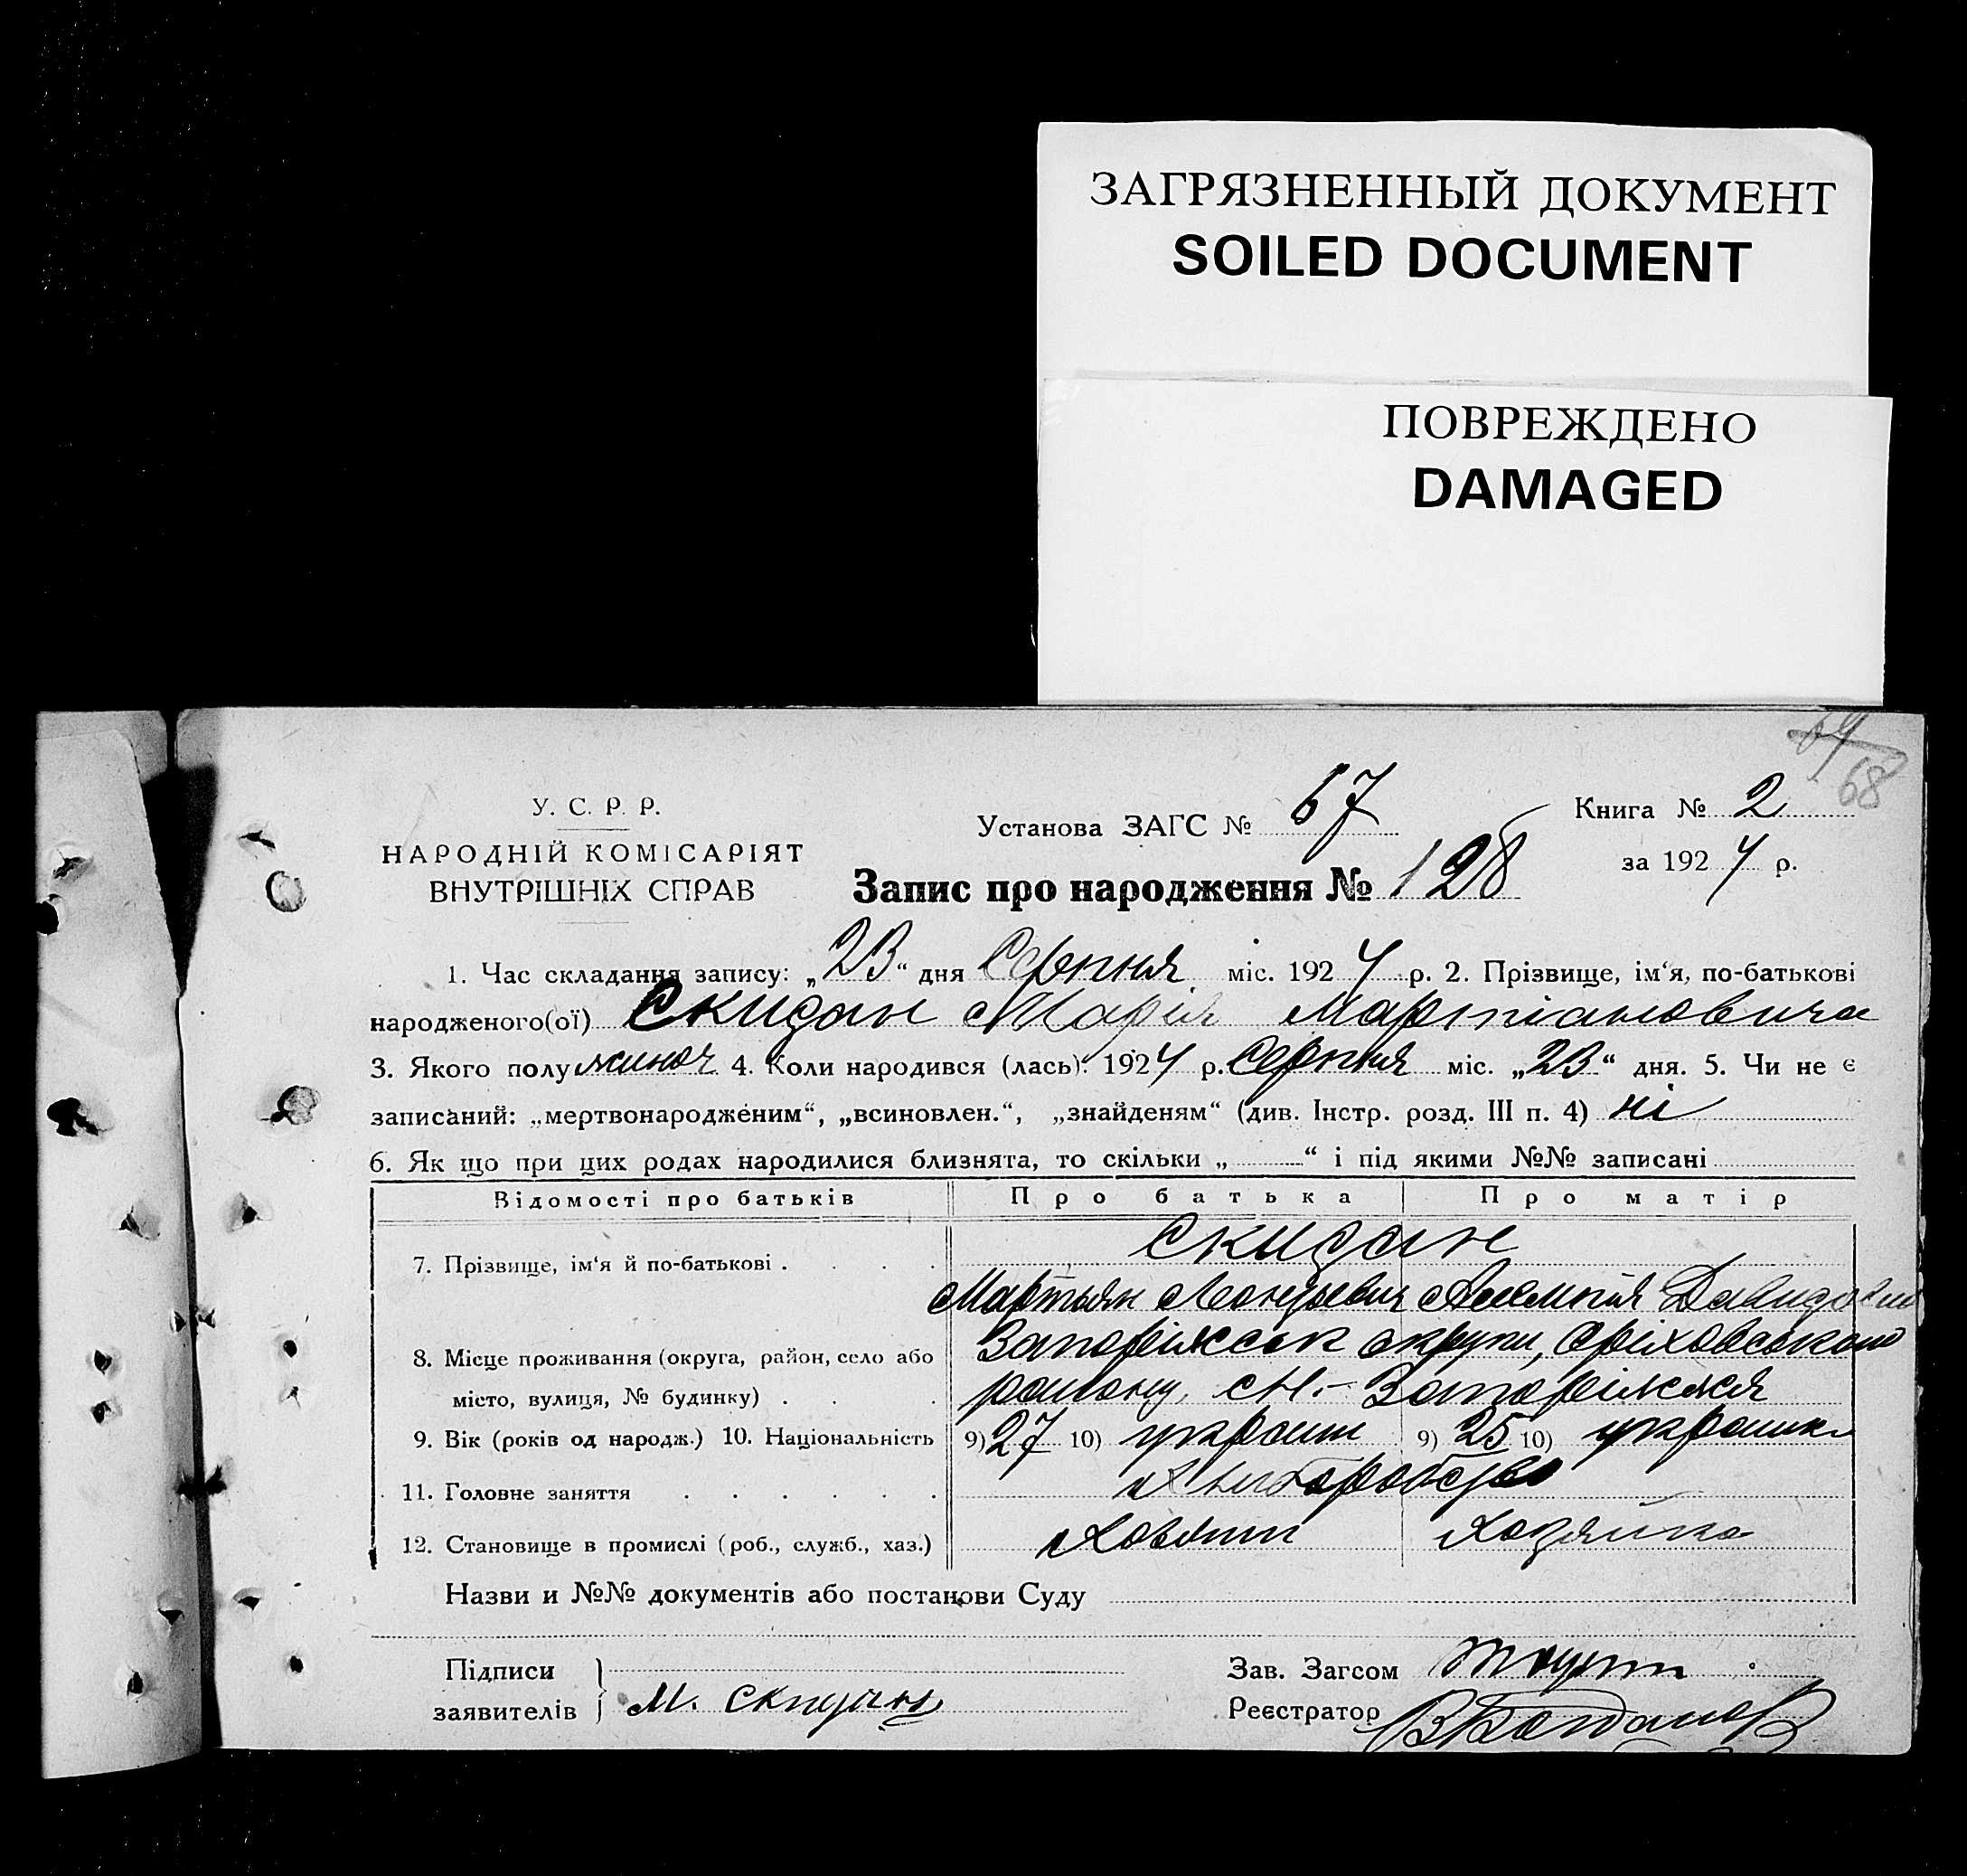 ЗАГРЯЗНЕННЫЙ ДОКУМЕНТ
SOILED DOCUMENT
ПОВРЕЖДЕНО
DAMAGED
68
У. С. Р. Р.
НАРОДНІЙ КОМІСАРІЯТ
ВНУТРІШНІХ СПРАВ
Установа ЗАГС № 67
Книга № 2
за 1924 р.
Запис про народження № 128
1. Час складання запису: „23“ дня Серпня міс. 1924 р. 2. Прізвище, ім‘я, по-батькові
народженого(ої) Скидан Марія Мартіановича
3. Якого полу жиноч 4. Коли народився (лась): 1924 р. Серпня міс. „23“ дня. 5. Чи не є
записаний: „мертвонародженим“, „всиновлен.“, „знайденям“ (див. Інстр. розд. III п. 4) ні
6. Як що при цих родах народилися близнята, то скільки „ “ і під якими №№ записані
Відомості про батьків Про батька Про матір
7. Прізвище, ім‘я й по-батькові . . . . Скидан
Мартьян Леонтьевич Давидовн
8. Місце проживання (округа, район, село або Запоріжськ округи, Оріховського
місто, вулиця, № будинку) . . . району, Запоріжжя
9. Вік (років од народж.) 10. Національність 9) 27 10) україн 9) 25 10) українка
11. Головне заняття . . . . . . Хліборобство
12. Становище в промислі (роб., служб., хаз.) Хозяїн Хозяйка
Назви и №№ документів або постанови Суду
Підписи
заявителів М. Скидан
Зав. Загсом
Реєстратор В Богданов